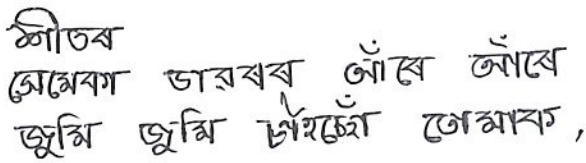 শীতৰ
সেমেকা ডাৱৰৰ আঁৰে আঁৰে
জুমি জুমি চাইছোঁ তোমাক,